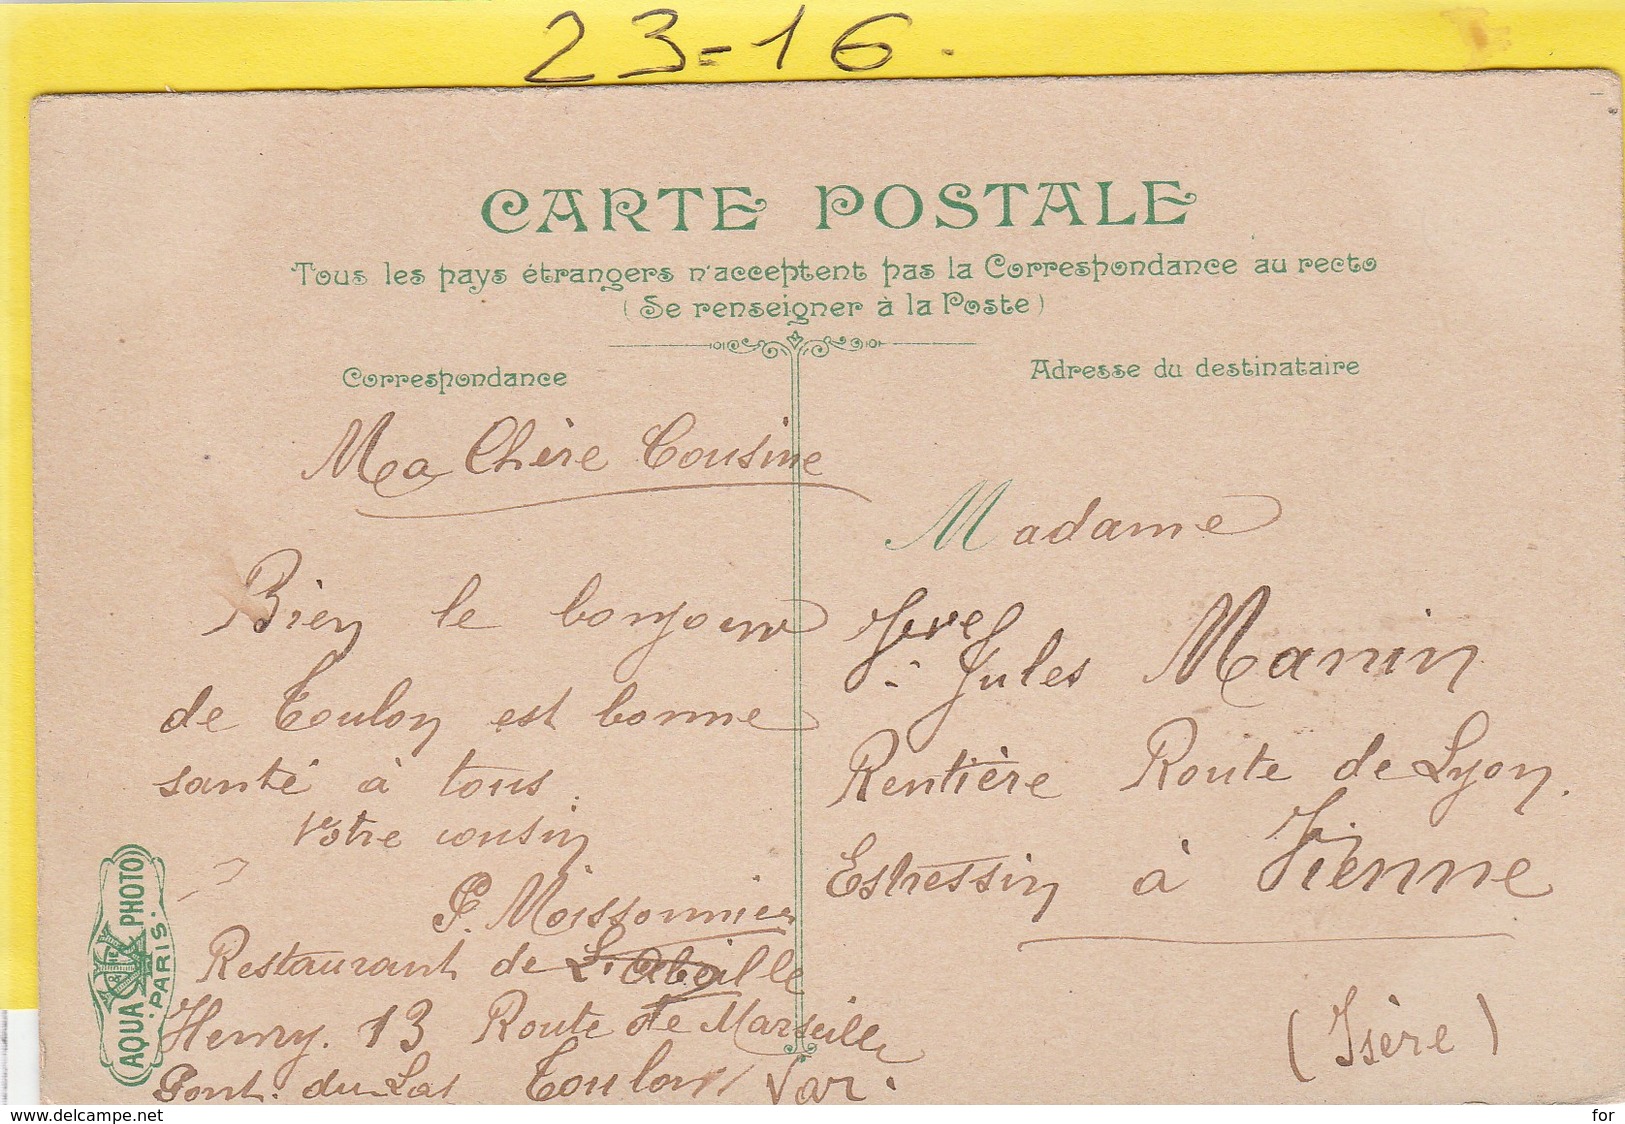 23-16.
CARTE POSTALE
Tous les pays étrangers n'acceptent pas la Correspondance au recto
(Se renseigner à la Poste)
Correspondance
Ma Chère Cousine
Bien le bonjour
de Toulon est bonne
santé à tous.
Votre cousin
P. Moissonnier
Restaurant de L'Abeille
Henry. 13 Route de Marseille
Pont. du Las Toulon Var.
AQUA PHOTO
PARIS.
Adresse du destinataire
Madame
Vve Jules Manin
Rentière Route de Lyon.
Estressin à Vienne
(Isère)
www.delcampe.net
for